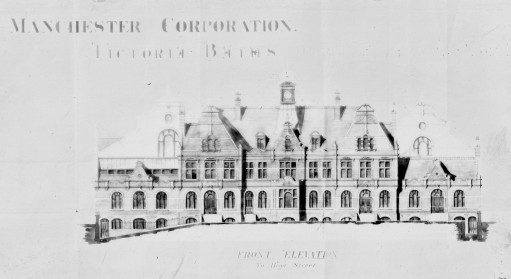 MANCHESTER CORPORATION.
VICTORIA BATHS
FRONT ELEVATION
To High Street